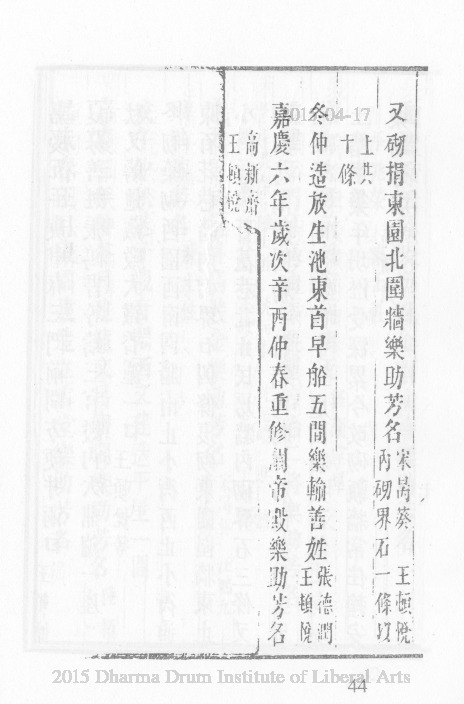 又砌捐東園北圍牆樂助芳名宋萬葵 王頓悅
內砌界石一條以
上共
十條
冬仲造放生池東首旱船五間樂輸善姓張德潤
王頓悅
嘉慶六年歲次辛酉仲春重修關帝殿樂助芳名
高新齋
王頓悅
2015-04-17
2015 Dharma Drum Institute of Liberal Arts
44